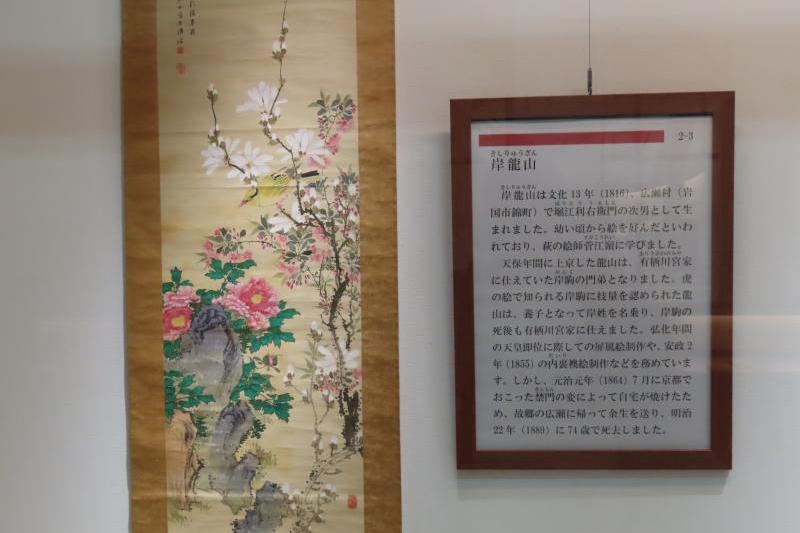 2-3
きしりゅうざん
岸龍山
きしりゅうざん
岸龍山は文化 13 年（1816）、広瀬村（岩
国市錦町）で堀江利右衛門の次男として生
まれました。幼い頃から絵を好んだといわ
れており、萩の絵師菅江嶺に学びました。
天保年間に上京した龍山は、有栖川宮家
に仕えていた岸駒の門弟となりました。虎
の絵で知られる岸駒に技量を認められた龍
山は、養子となって岸姓を名乗り、岸駒の
死後も有栖川宮家に仕えました。弘化年間
の天皇即位に際しての屏風絵制作や、安政 2
年（1855）の内裏襖絵制作などを務めていま
す。しかし、元治元年（1864）7 月に京都で
おこった禁門の変によって自宅が焼けたた
め、故郷の広瀬に帰って余生を送り、明治
22 年（1889）に 74 歳で死去しました。